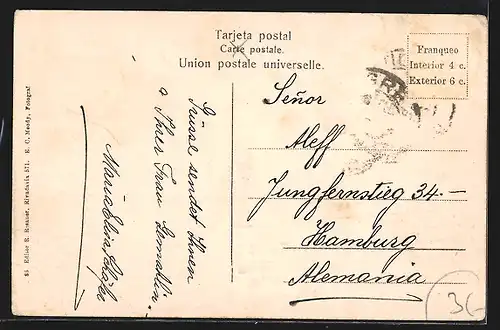 Tarjeta postal
Carte postale.
Union postale universelle.
Franqueo
Interior 4 c.
Exterior 6 c.
Señor
Aleff
Jungfernstieg 34.—
Hamburg
Alemania
Grüsse sendet Ihnen
Ihrer Frau Gemahlin.
Maria
85 Editor R. Rosauer, Rivadavia 571. E. C. Moody, Fotograf
36